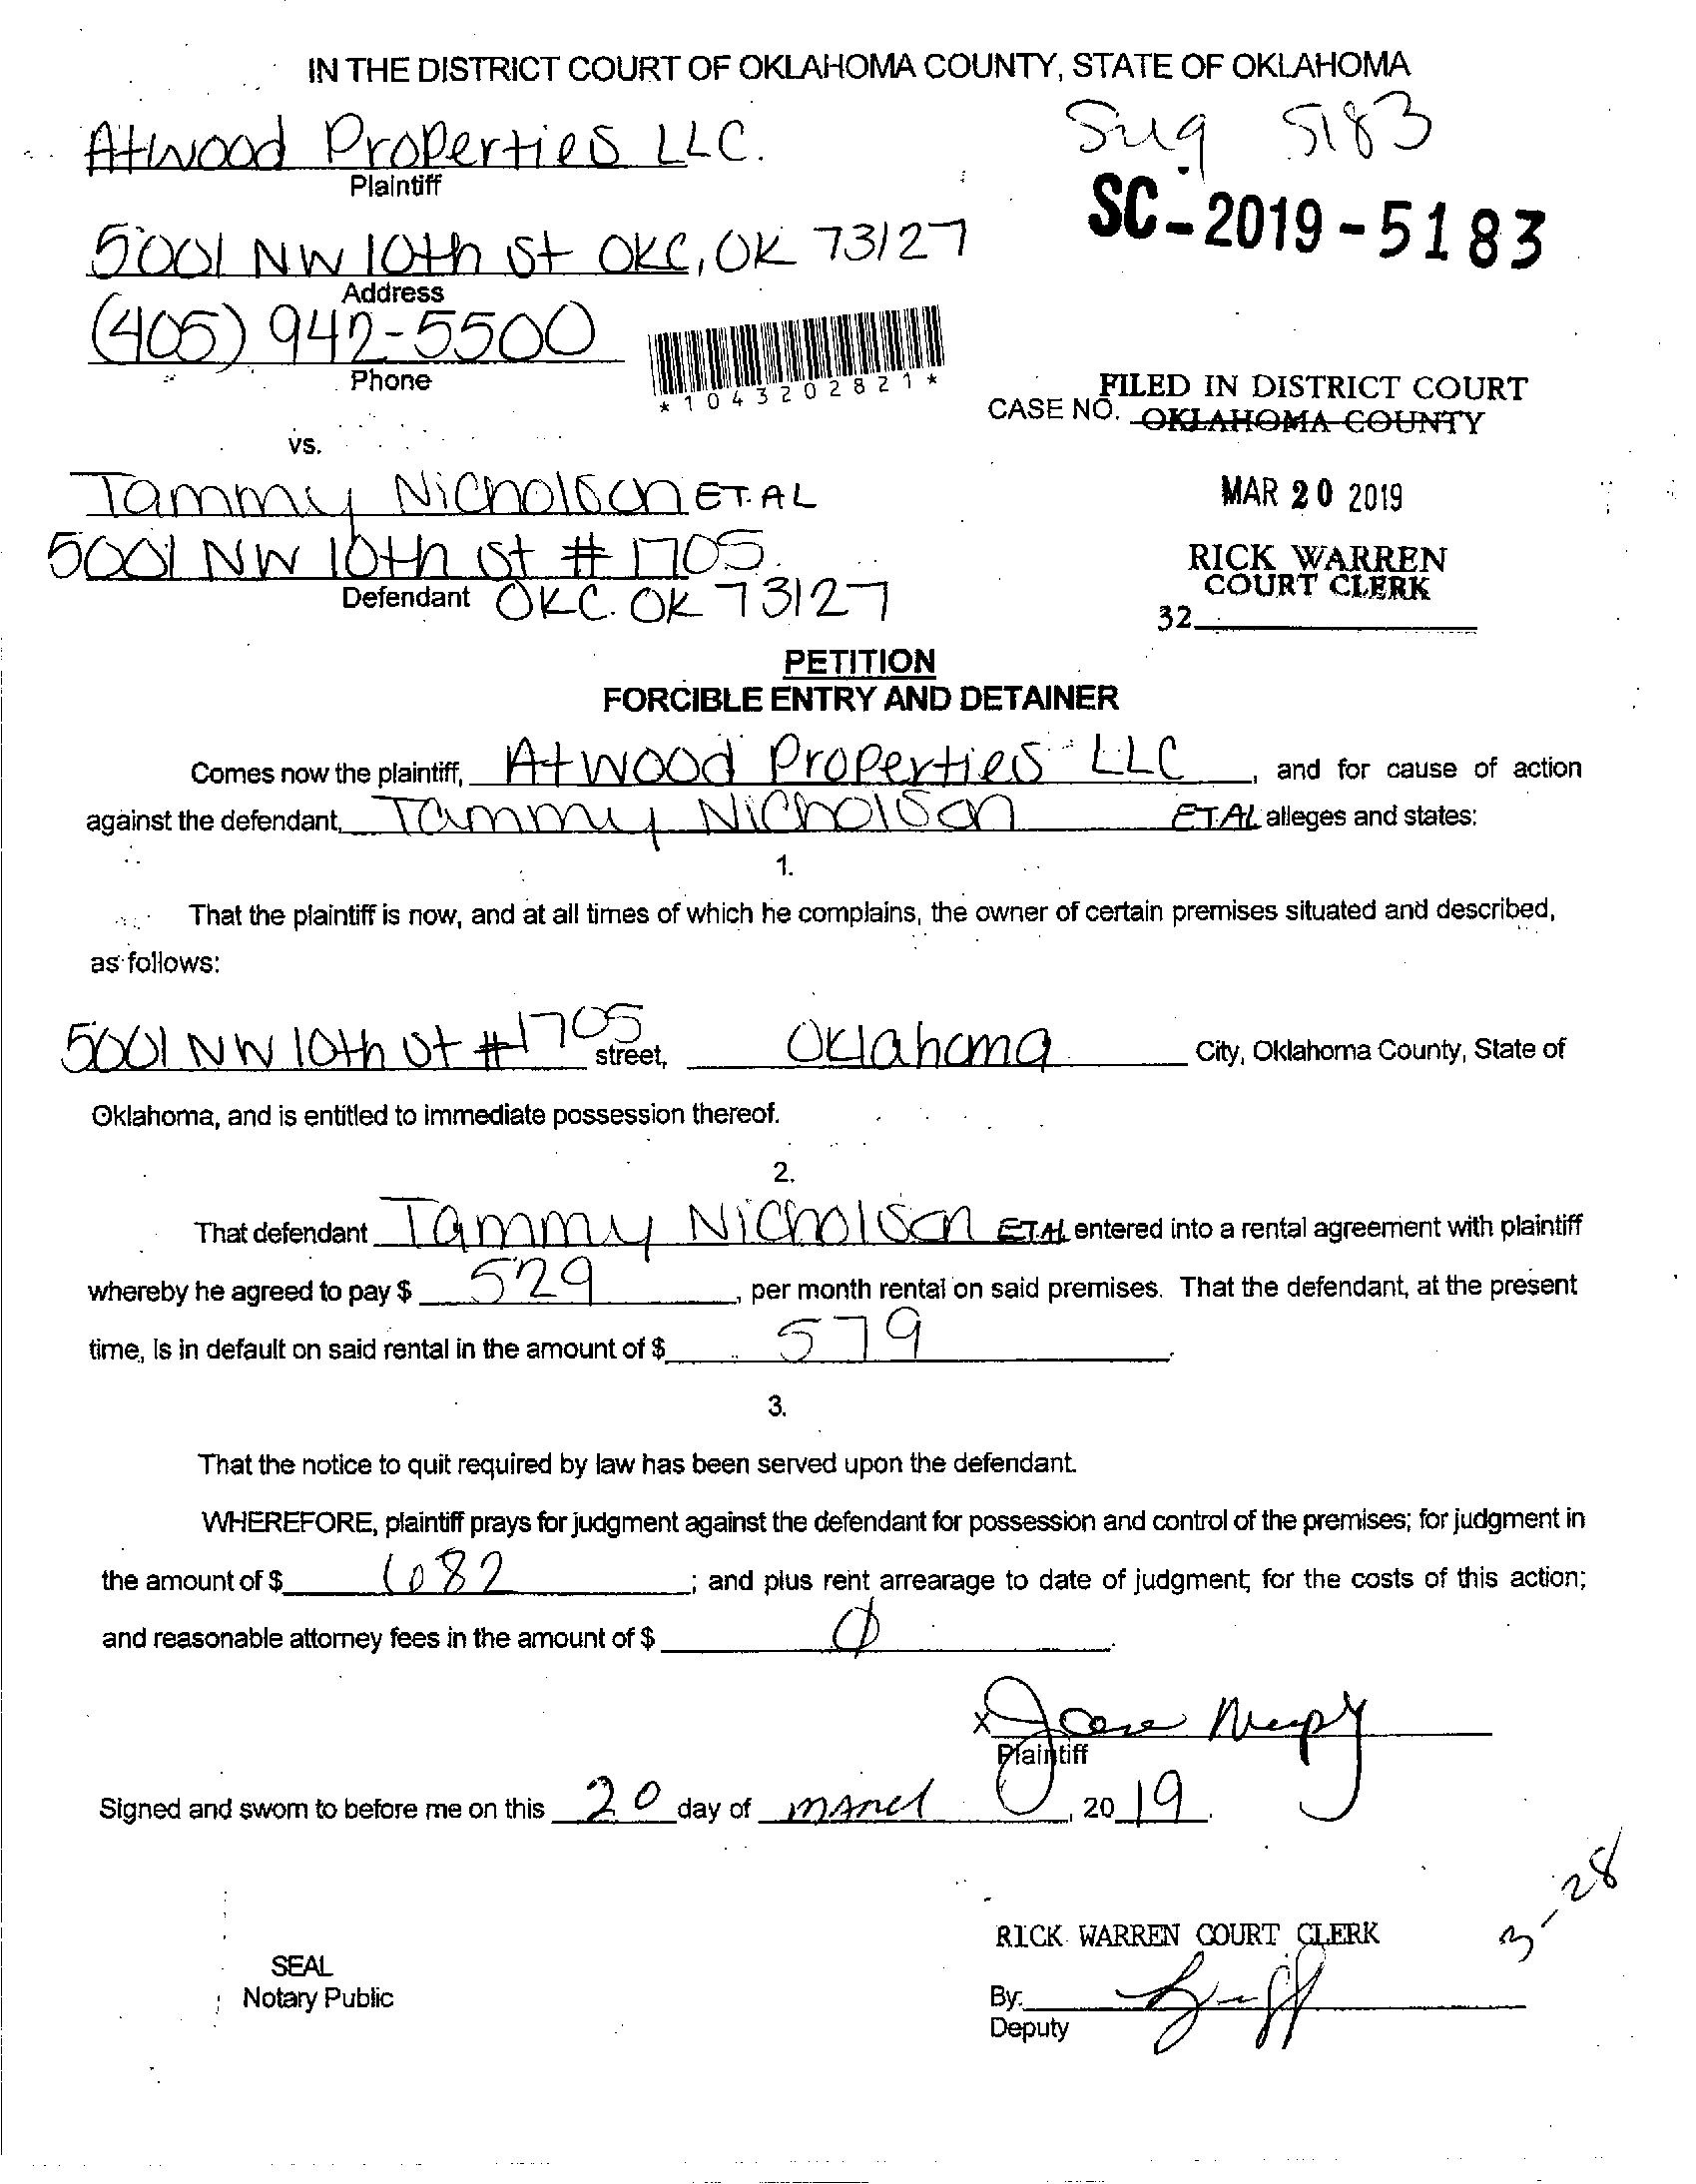 IN THE DISTRICT COURT OF OKLAHOMA COUNTY, STATE OF OKLAHOMA
Atwood Properties LLC.
5183
Plaintiff
SC-2019-5183
5001 NW 10th St OKC, OK 73127
Address
(405) 942-5500
Phone
*1043202821*
FILED IN DISTRICT COURT
CASE NO. OKLAHOMA COUNTY
vs.
Tammy Nicholson ET. AL
MAR 20 2019
5001 NW 10th St # 1705
RICK WARREN
COURT CLERK
Defendant OKC. OK 73127
32
PETITION
FORCIBLE ENTRY AND DETAINER
Comes now the plaintiff, Atwood Properties LLC, and for cause of action
against the defendant, Tammy Nicholson ET.AL alleges and states:
1.
That the plaintiff is now, and at all times of which he complains, the owner of certain premises situated and described,
as follows:
5001 NW 10th St #1705 street, Oklahoma City, Oklahoma County, State of
Oklahoma, and is entitled to immediate possession thereof.
2.
That defendant Tammy Nicholson ET.AL entered into a rental agreement with plaintiff
whereby he agreed to pay $ 529, per month rental on said premises. That the defendant, at the present
time, is in default on said rental in the amount of $ 579.
3.
That the notice to quit required by law has been served upon the defendant.
WHEREFORE, plaintiff prays for judgment against the defendant for possession and control of the premises; for judgment in
the amount of $ 682; and plus rent arrearage to date of judgment; for the costs of this action;
and reasonable attorney fees in the amount of $ 0.
x
Plaintiff
Signed and sworn to before me on this 20 day of March, 2019.
3-28
RICK WARREN COURT CLERK
SEAL
Notary Public
By:
Deputy